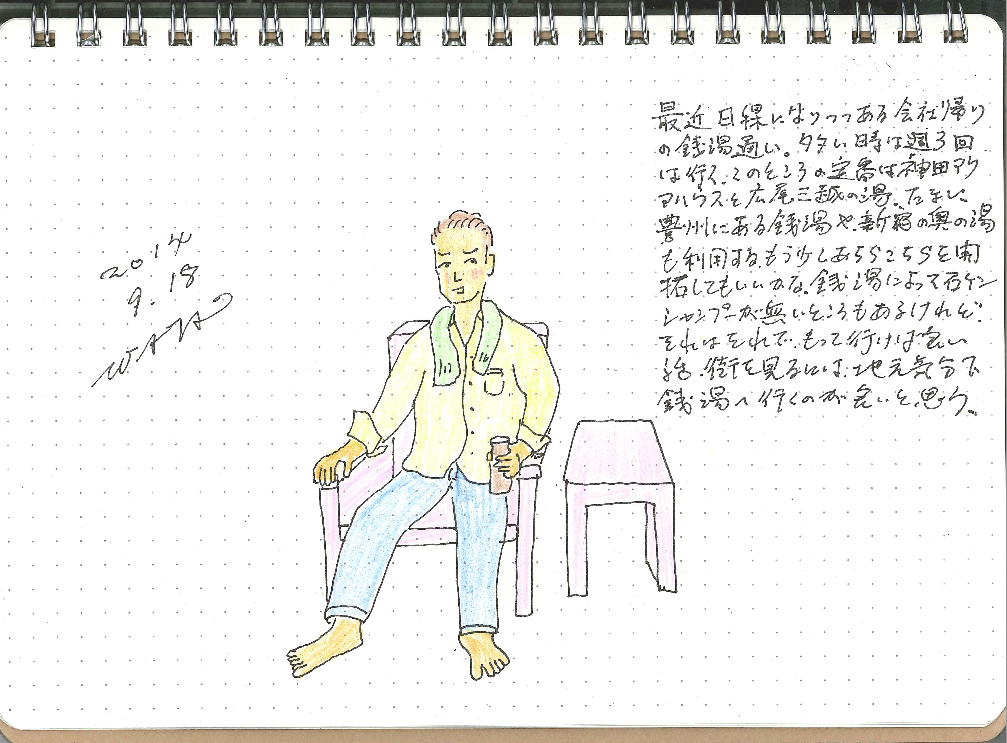 2014
9.18
最近日課になりつつある会社帰り
の銭湯通い。多い時は週3回
は行く。このところの定番は神田アク
アハウスと広尾三越の湯。たまに
豊洲にある銭湯や新宿の奥の湯
も利用する。もう少しあちらこちらを開
拓してもいいかな。銭湯によって石ケン
シャンプーが無いところもあるけれど、
それはそれで、もって行けば良い
話。街を見るには、地元気分で
銭湯へ行くのが良いと思う。